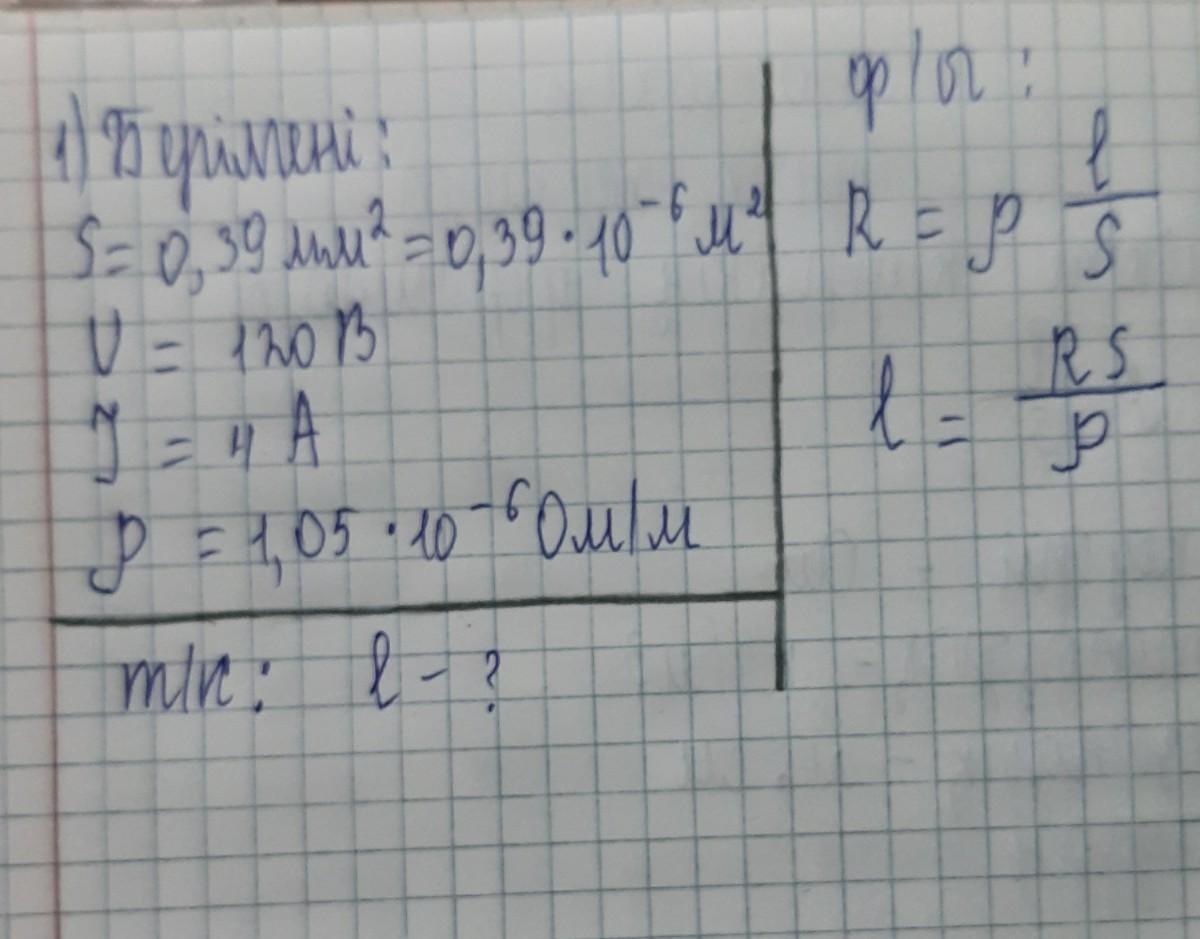 1) Берілгені:
S = 0,39 мм² = 0,39 · 10⁻⁶ м²
U = 120 В
J = 4 А
ρ = 1,05 · 10⁻⁶ Ом/м
т/к: l - ?
ф/л:
R = ρ l/S
l = RS/ρ